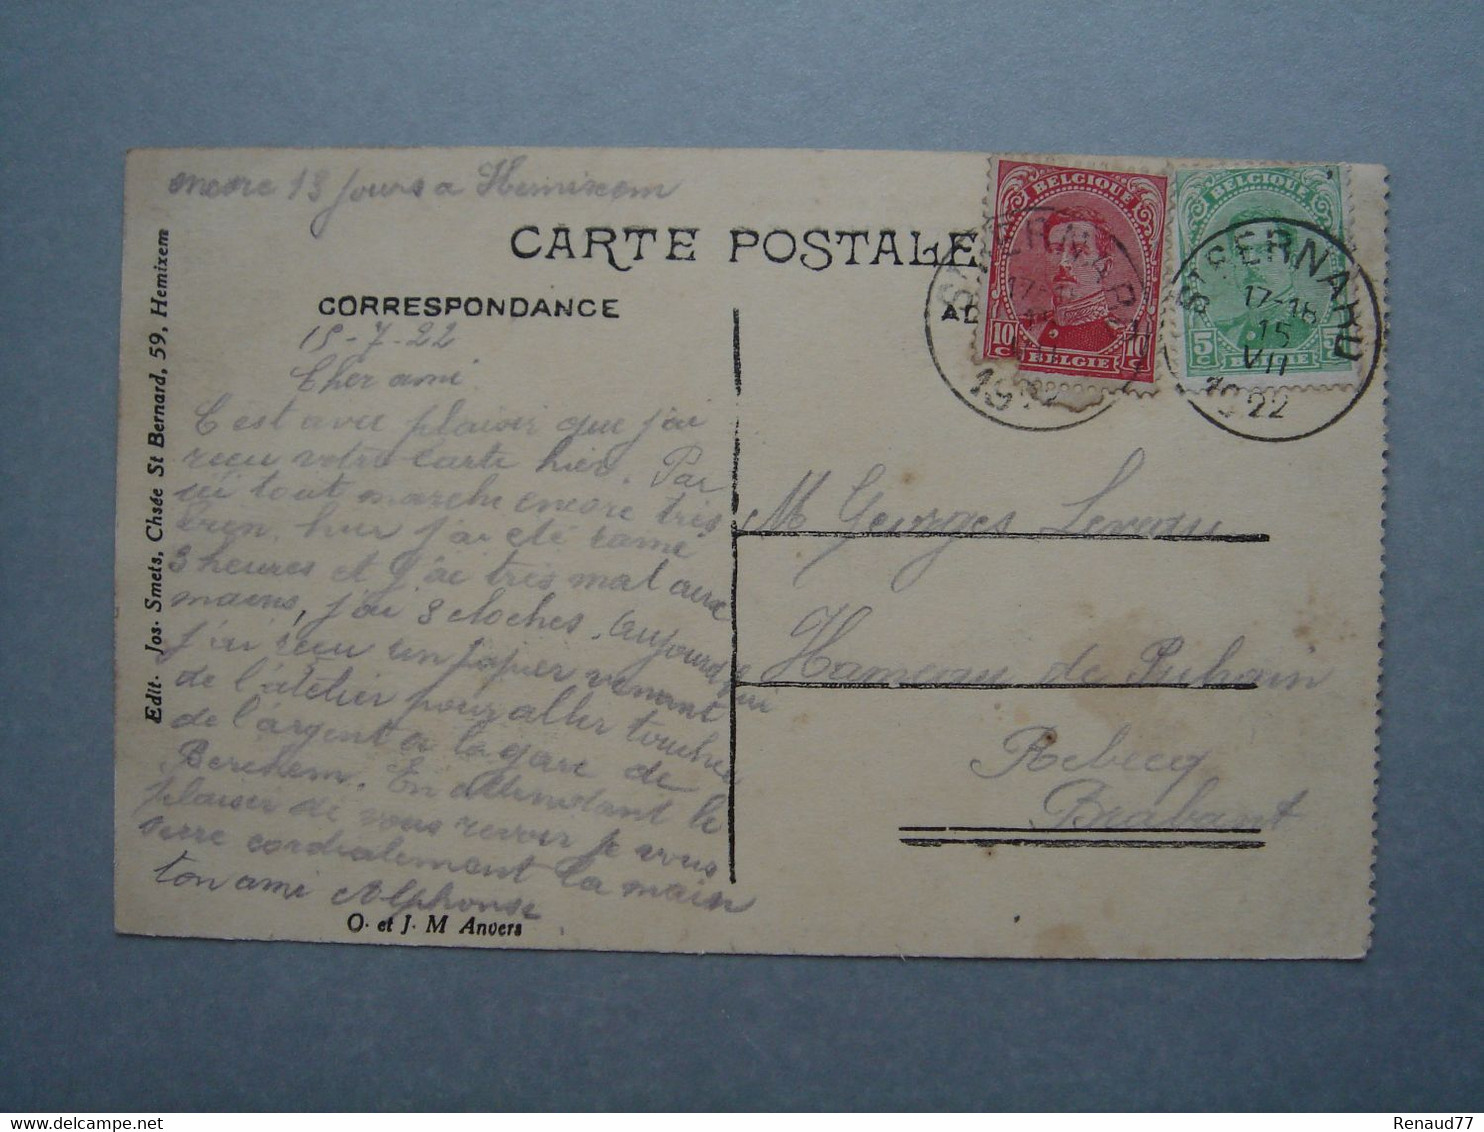 encore 13 jours a Hemixem
CARTE POSTALE
CORRESPONDANCE
15-7-22
Cher ami
C'est avec plaisir que j'ai
reçu votre carte hier. Par
ici tout marche encore très
bien. hier j'ai été ramé
3 heures et j'ai très mal aux
mains, j'ai 3 cloches. Aujourd'hui
j'ai reçu un papier venant
de l'atelier pour aller toucher
de l'argent a la gare de
Berchem. En attendant le
plaisir de vous revoir je vous
serre cordialement la main
ton ami Alphonse
O. et J. M Anvers
Edit. Jos. Smets, Chsée St Bernard, 59, Hemixem
BELGIQUE
10 C 10 C
BELGIË
BELGIQUE
5 C
BELGIË
ST BERNARD
17-18
15
VII
1922
M Georges
Hameau de
Rebecq
Brabant
Renaud77